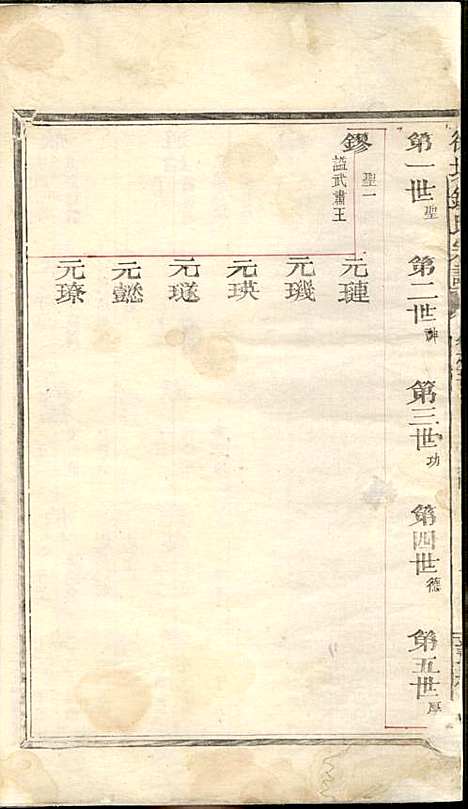 第一世聖
第二世神
第三世功
第四世德
第五世厚
鏐
聖一
謚武肅王
元璉
元璣
元瑛
元璲
元懿
元璙